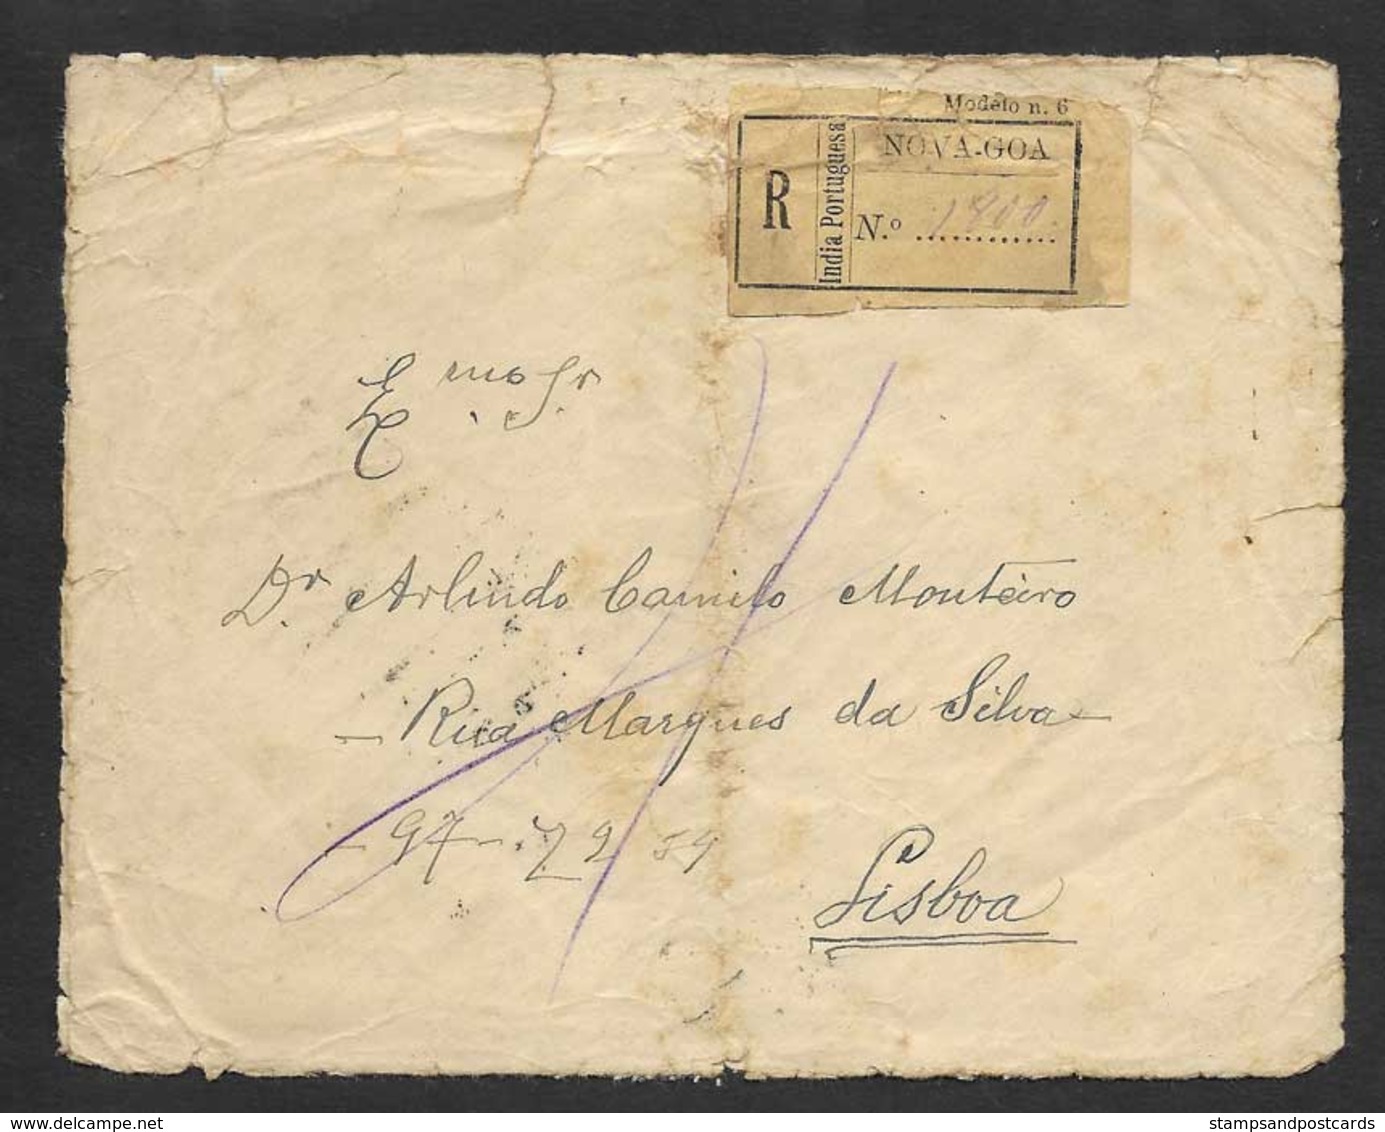 Modelo n. 6
R
India Portuguesa
NOVA-GOA
N.º 1800
Exmo Sr
Dr. Arlindo Camilo Monteiro
- Rua Marques da Silva -
- 97 -
Lisboa
stampsandpostcards
delcampe.net